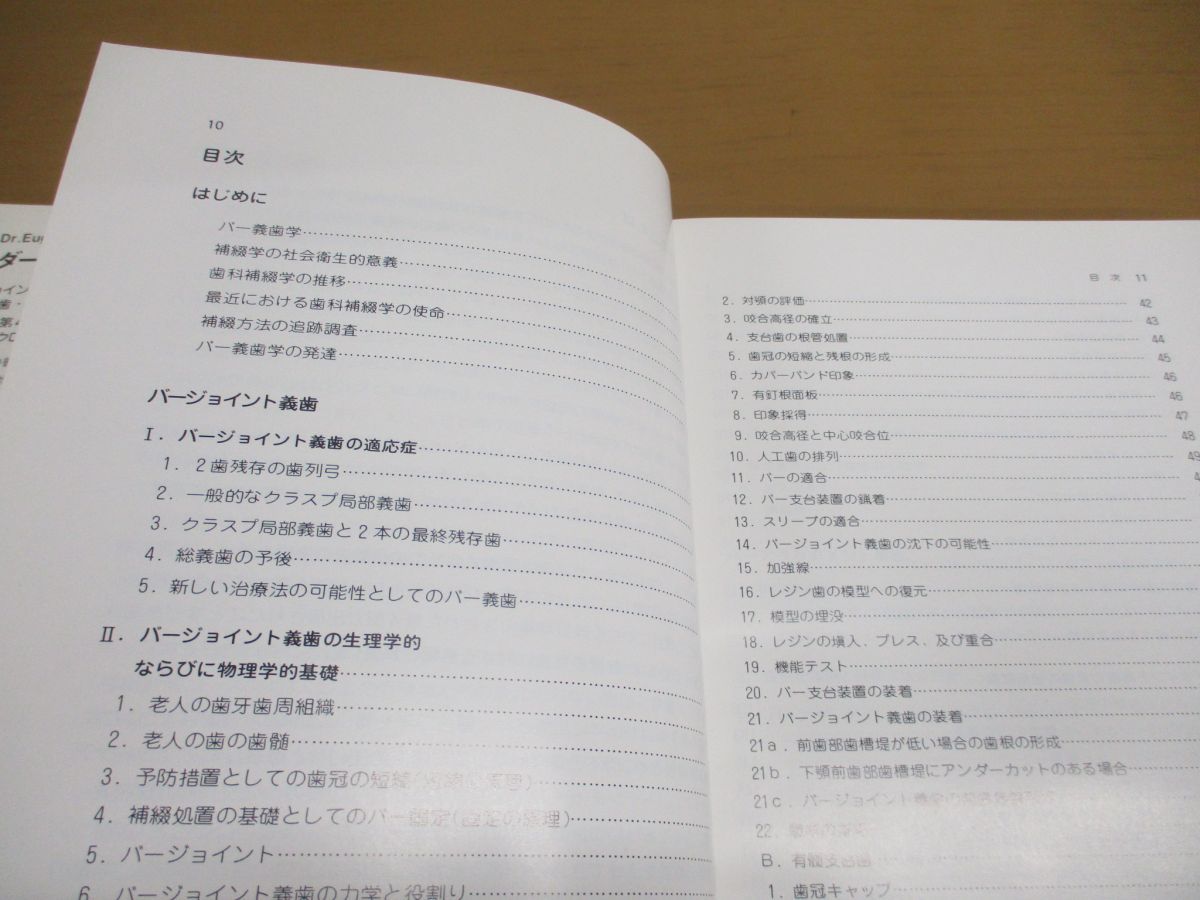 Dr.Eug
ダー
10
目次
はじめに
バー義歯学
補綴学の社会衛生的意義
歯科補綴学の推移
最近における歯科補綴学の使命
補綴方法の追跡調査
バー義歯学の発達
バージョイント義歯
Ⅰ. バージョイント義歯の適応症
1. 2歯残存の歯列弓
2. 一般的なクラスプ局部義歯
3. クラスプ局部義歯と2本の最終残存歯
4. 総義歯の予後
5. 新しい治療法の可能性としてのバー義歯
Ⅱ. バージョイント義歯の生理学的
ならびに物理学的基礎
1. 老人の歯牙歯周組織
2. 老人の歯の歯髄
3. 予防措置としての歯冠の短縮
4. 補綴処置の基礎としてのバー固定(固定の原理)
5. バージョイント
6. バージョイント義歯の力学と役割り
目次 11
2. 対顎の評価 42
3. 咬合高径の確立 43
4. 支台歯の根管処置 44
5. 歯冠の短縮と残根の形成 45
6. カパーバンド印象 46
7. 有釘根面板 46
8. 印象採得 47
9. 咬合高径と中心咬合位 48
10. 人工歯の排列 49
11. バーの適合
12. バー支台装置の鑞着
13. スリーブの適合
14. バージョイント義歯の沈下の可能性
15. 加強線
16. レジン歯の模型への復元
17. 模型の埋没
18. レジンの塡入、プレス、及び重合
19. 機能テスト
20. バー支台装置の装着
21. バージョイント義歯の装着
21a. 前歯部歯槽堤が低い場合の歯根の形成
21b. 下顎前歯部歯槽堤にアンダーカットのある場合
21c. バージョイント義歯の
22.
B. 有髄支台歯
1. 歯冠キャップ